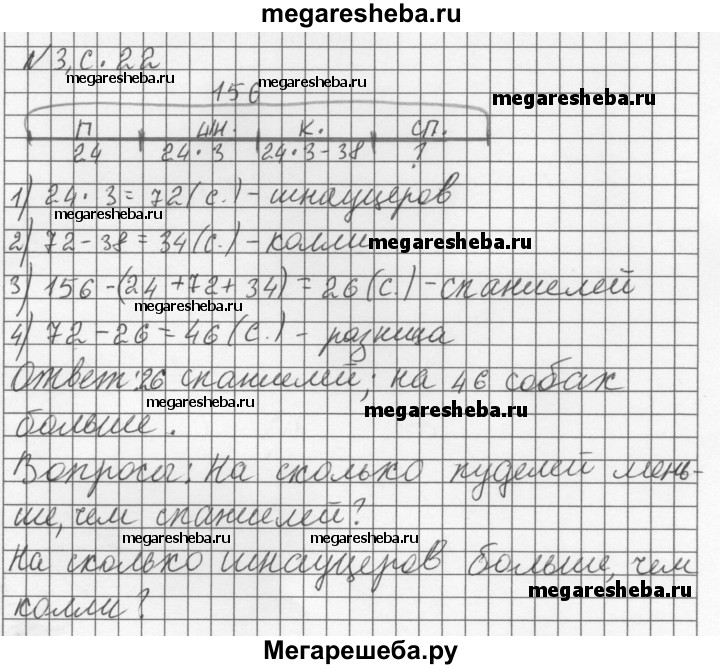 megaresheba.ru
N 3, с. 22
megaresheba.ru megaresheba.ru
156
megaresheba.ru
п шн. к. сп.
24 24·3 24·3-38 ?
1) 24·3=72(с.)-шнауцеров
megaresheba.ru
2) 72-38=34(с.)-колли
megaresheba.ru
3) 156-(24+72+34)=26(с.)-спаниелей
megaresheba.ru
4) 72-26=46(с.)-разница
Ответ: 26 спаниелей; на 46 собак
megaresheba.ru megaresheba.ru
больше.
Вопросы: На сколько пуделей мень-
ше, чем спаниелей?
megaresheba.ru megaresheba.ru
На сколько шнауцеров больше, чем
megaresheba.ru
колли?
Мегарешеба.ру